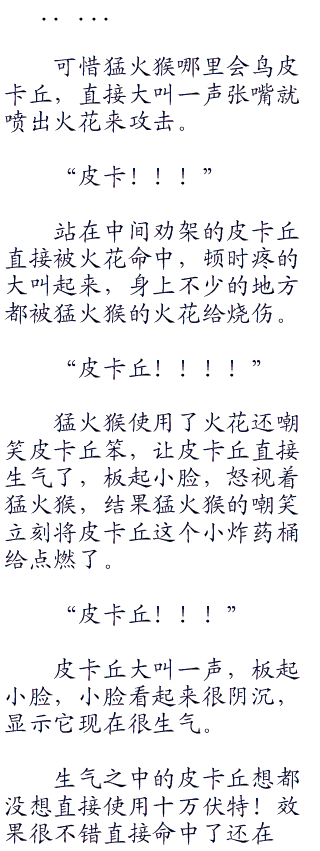 ．．．．．
可惜猛火猴哪里会鸟皮
卡丘，直接大叫一声张嘴就
喷出火花来攻击。
“皮卡！！！”
站在中间劝架的皮卡丘
直接被火花命中，顿时疼的
大叫起来，身上不少的地方
都被猛火猴的火花给烧伤。
“皮卡丘！！！！”
猛火猴使用了火花还嘲
笑皮卡丘笨，让皮卡丘直接
生气了，板起小脸，怒视着
猛火猴，结果猛火猴的嘲笑
立刻将皮卡丘这个小炸药桶
给点燃了。
“皮卡丘！！！”
皮卡丘大叫一声，板起
小脸，小脸看起来很阴沉，
显示它现在很生气。
生气之中的皮卡丘想都
没想直接使用十万伏特！效
果很不错直接命中了还在